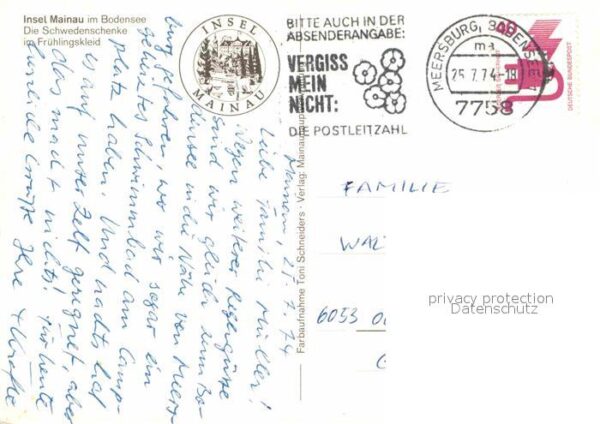 Insel Mainau im Bodensee
Die Schwedenschenke
im Frühlingskleid
INSEL
MAINAU
BITTE AUCH IN DER
ABSENDERANGABE:
VERGISS
MEIN
NICHT:
DIE POSTLEITZAHL
MEERSBURG, BODENSEE
ma
25.7.74-18
7758
DEUTSCHE BUNDESPOST
Farbaufnahme Toni Schneiders · Verlag: Mainau
25.7.74
Liebe Familie Müller!
Wegen weiterer Regengüsse
sind wir gleich zum Bo-
densee in die Nähe von Meers-
burg gefahren, wo wir sogar ein
geheiztes Schwimmbad am Camp-
platz haben. Und nachts hat
es auf unser Zelt geregnet, aber
das macht nichts! Für heute
herzliche Grüße Ihre
FAMILIE
WAL
6053
privacy protection
Datenschutz